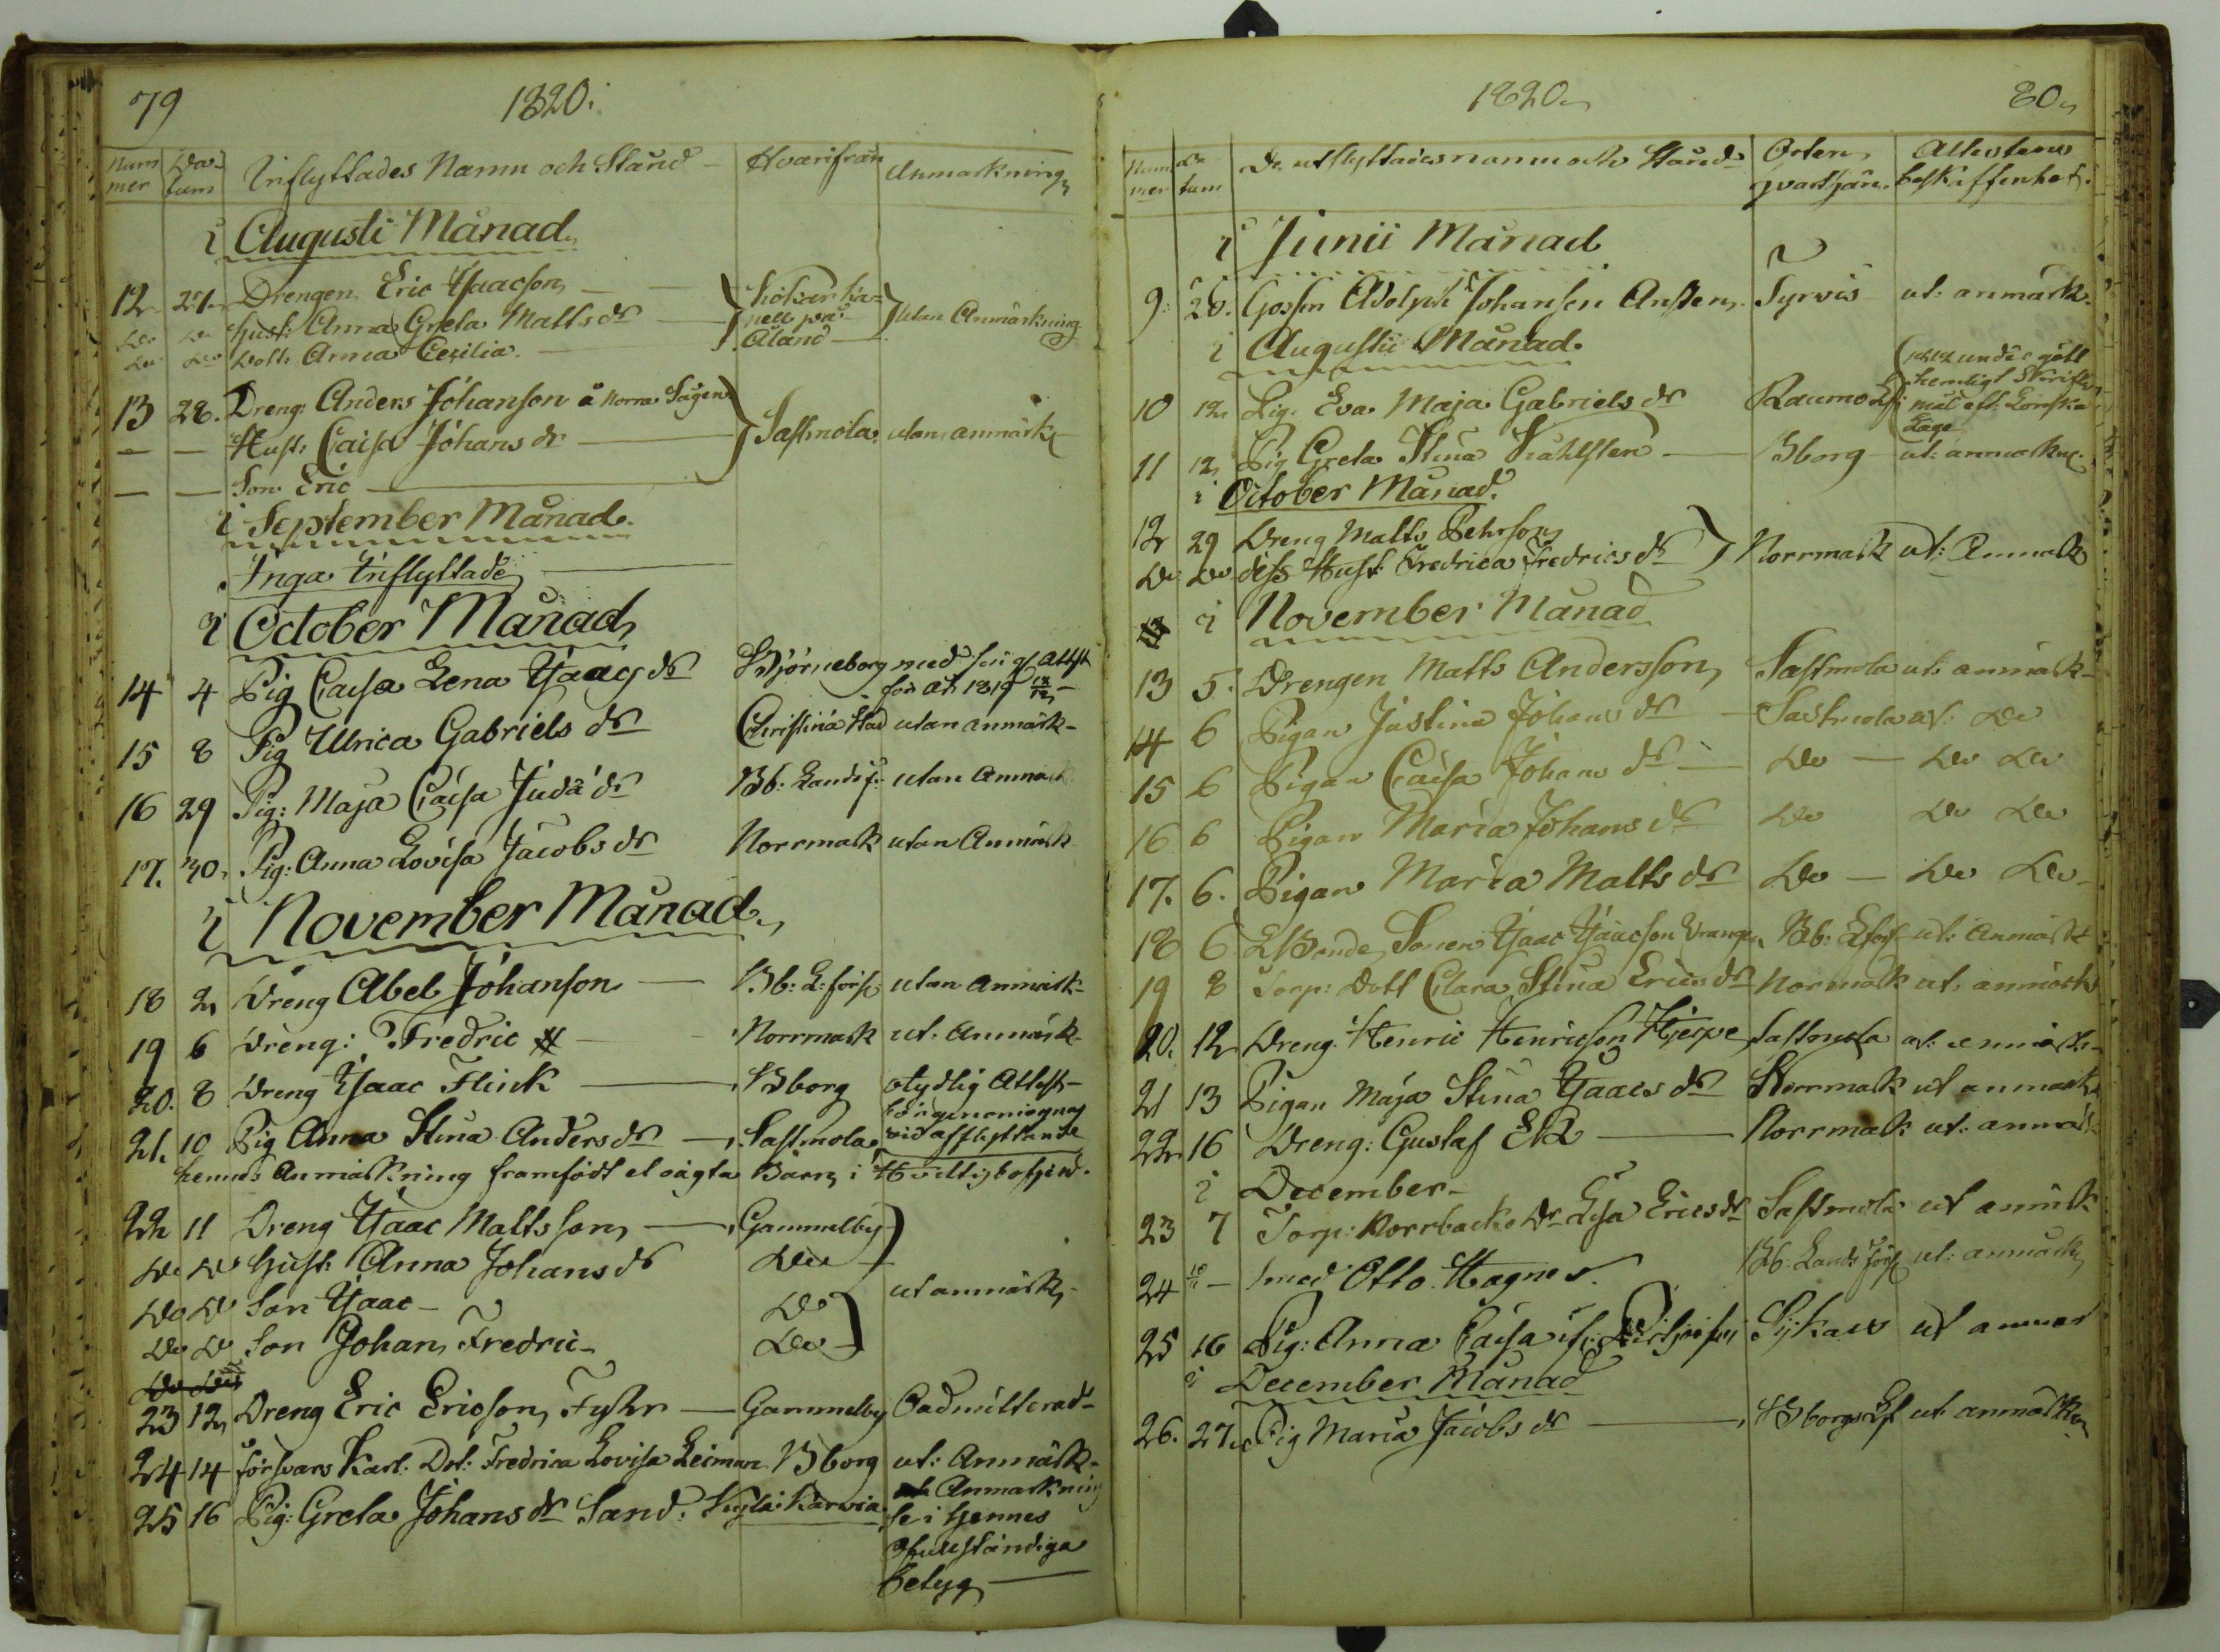 79 1820.
Num mer Da tum Inflyttades Namn och Stånd Hvarifrån Anmärkning
i Augusti Månad
12 27 Drengen Eric Isaacson
Do Do Hust: Anna Greta Matts dr Kökar Ca=
Do Do Dott: Anna Cecilia. pell på Åland utan Anmärkning
13 28. Dreng: Anders Johanson å Norra
— — Hust: Caisa Johans dr Sastmola utan anmärk
— — Son Eric
i September Månad.
Inga Inflyttade
i October Månad
14 4 Pig Caisa Lena Isaacs dr Björneborg med attest
för år 1819
15 8 Pig Ulrica Gabriels dr Christina Stad utan anmärk-
16 29 Pig: Maja Caisa Juda dr Bb: Landsf: utan Anmärk
17. 30. Pig: Anna Lovisa Jacobs dr Norrmark utan Anmärk
i November Månad
18 2 Dreng Abel Johanson Bb: L: förs: utan anmärk-
19 6 Dreng: Fredric Norrmark ut: Anmärk-
20. 8 Dreng Isaac Flink Bborg otydlig Attest-
21. 10 Pig Anna Stina Anders dr Sastmola vid afflyttande
hennes Anmärkning framfödt et oägta Barn i
22 11 Dreng Isaac Mattsson Gammelby
Do Do Hust: Anna Johans dr Do
Do Do Son Isaac Do ut anmärk-
Do Do Son Johan Fredric Do
23 12 Dreng Eric Ericson Fyhr Gammelby Oadmitterad
24 14 försvars Karl. Dot: Fredrica Lovisa Leiman Bborg ut: Anmärk-
25 16 Pig: Greta Johans dr Sand. Kylä Karvia Anmärkning
Se i hennes
fullständiga
Betyg
1820 80
Num mer Da tum De utflyttades namn och Stånd Orten hvarthän. Attestens beskaffenhet.
i Junii Månad
9. 28. Gossen Adolph Johansen Ansten Tyrvis ut: anmärk.
i Augustii Månad.
10 12 Pig: Eva Maja Gabriels dr Raumo Lf undergått
hemligt Skrifter
mål eft: Kyrko
Lage
11 12 Pig Greta Stina Ståhlsten Bborg ut: anmärkn.
i October Månad.
12 29 Dreng Matts Pehrson
Do Do dess Hust: Fredrica Fredrics dr Norrmark ut: Anmärk
i November Månad
13 5. Drengen Matts Andersson Sastmola ut: anmärk-
14 6 Pigan Justina Johans dr Sastmola ut: Do
15 6 Pigan Caisa Johans dr Do — Do Do
16 6 Pigan Maria Johans dr Do Do Do
17. 6. Pigan Maria Matts dr Do — Do Do
18 6 Bonde Sonen Isaac Isaacson Vrangen Bb: Lförs ut: Anmärk
19 8 Torp: Dott Clara Stina Erics dr Normark ut: anmärk
20. 12 Dreng: Henric Henricson Hjerpe Sastmola ut: anmärk-
21 13 Pigan Maja Stina Isaacs dr Norrmark ut anmärk
22 16 Dreng: Gustaf Ek Norrmark ut: anmärk
i December
23 7 Torp: Korrbacka Dr Lisa Erics dr Sastmola ut anmärk
24 — Smed Otto Hagner. Bb. Lands förs ut: anmärk
25 16 Pig: Anna Caisa Sijkais ut anmär
i December Månad
26. 27 Pig Maria Jacobs dr Bborgs Lf ut anmärkn